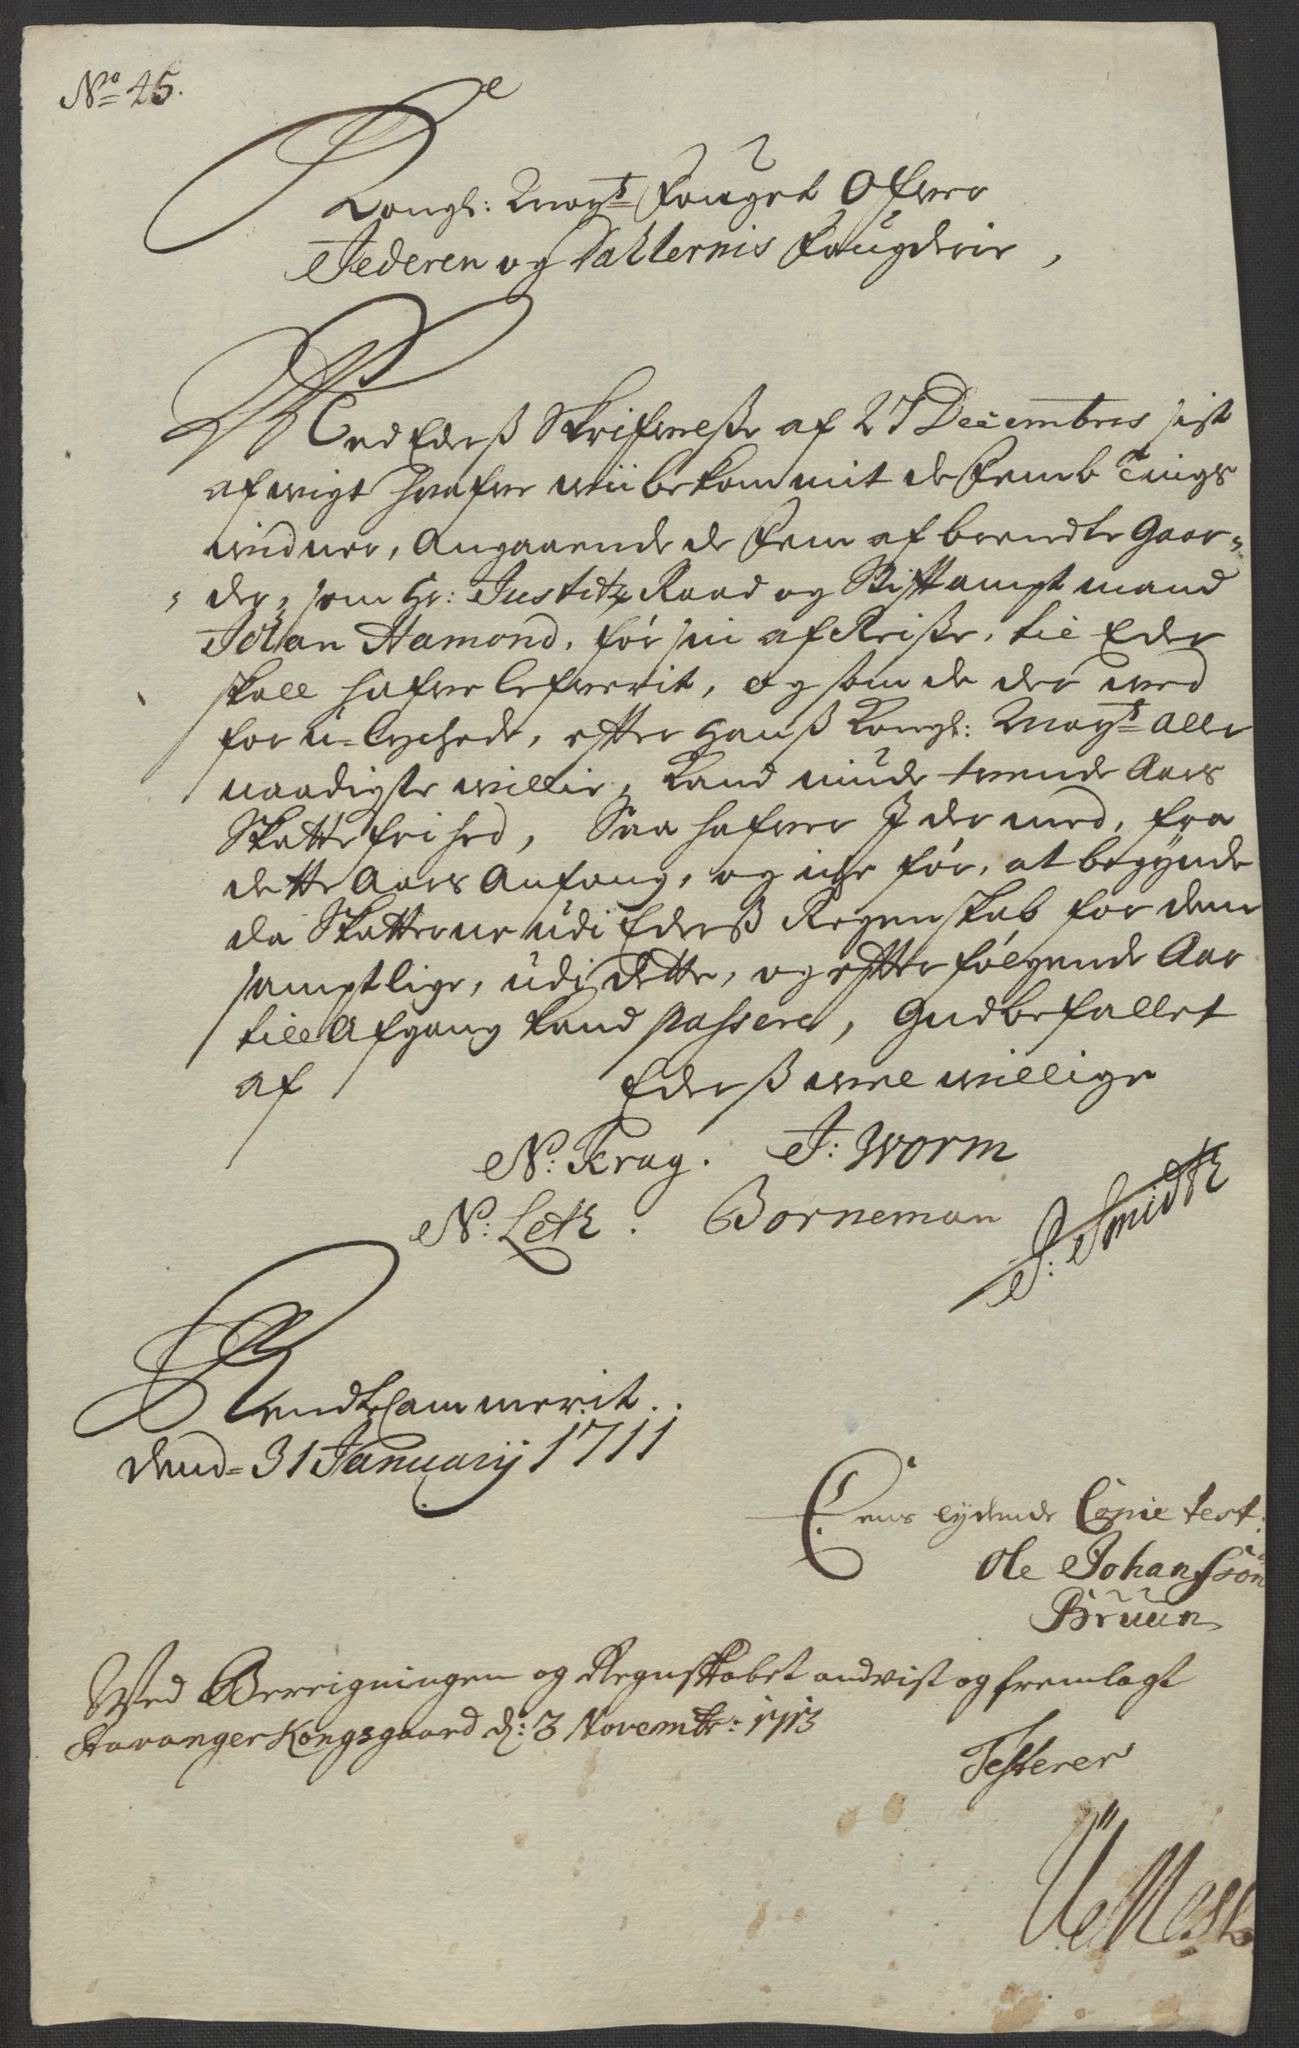 No 45.
Kongl: Mayts Fouget Ofver
Jederen og Dallernis Fougderie,
Med Eders Skrifvelsse af 27 Decembris sist
afvigt hafve wii bekommit de Femb Tings
widner, Angaaende de Fem af brendte Gaar-
der, som Hr: Justitz Raad og Stiftampt mand
Johan Hamond, før sin af Reisse, til Eder
skall hafve lefverit, og som de der ved
for u-lychede, efter Hans Kongl: Mayts Aller
naadigste willie, kand niude tvende Aars
Skatte frihed, Saa hafver I der med, fra
dette Aars Anfang, og icke før, at begynde
da Skatterne udi Eders Regenskab for dem
samptlige, udi dette, og efter følgende Aar
till Afgang kand passere, Gud befallet
af Eders vel willige
N: Krag. J: Worm
N: Leth. Borneman J: Smidth
Rendte Cammerit.
dend 31 Januarij 1711
Eens lydende Copie test:
Ole Johansson
Bruun
Wed Bereigningen og Regnskabet andvist og fremlagt
Stavanger Kongsgaard d: 3 Novembr: 1713
Testerer